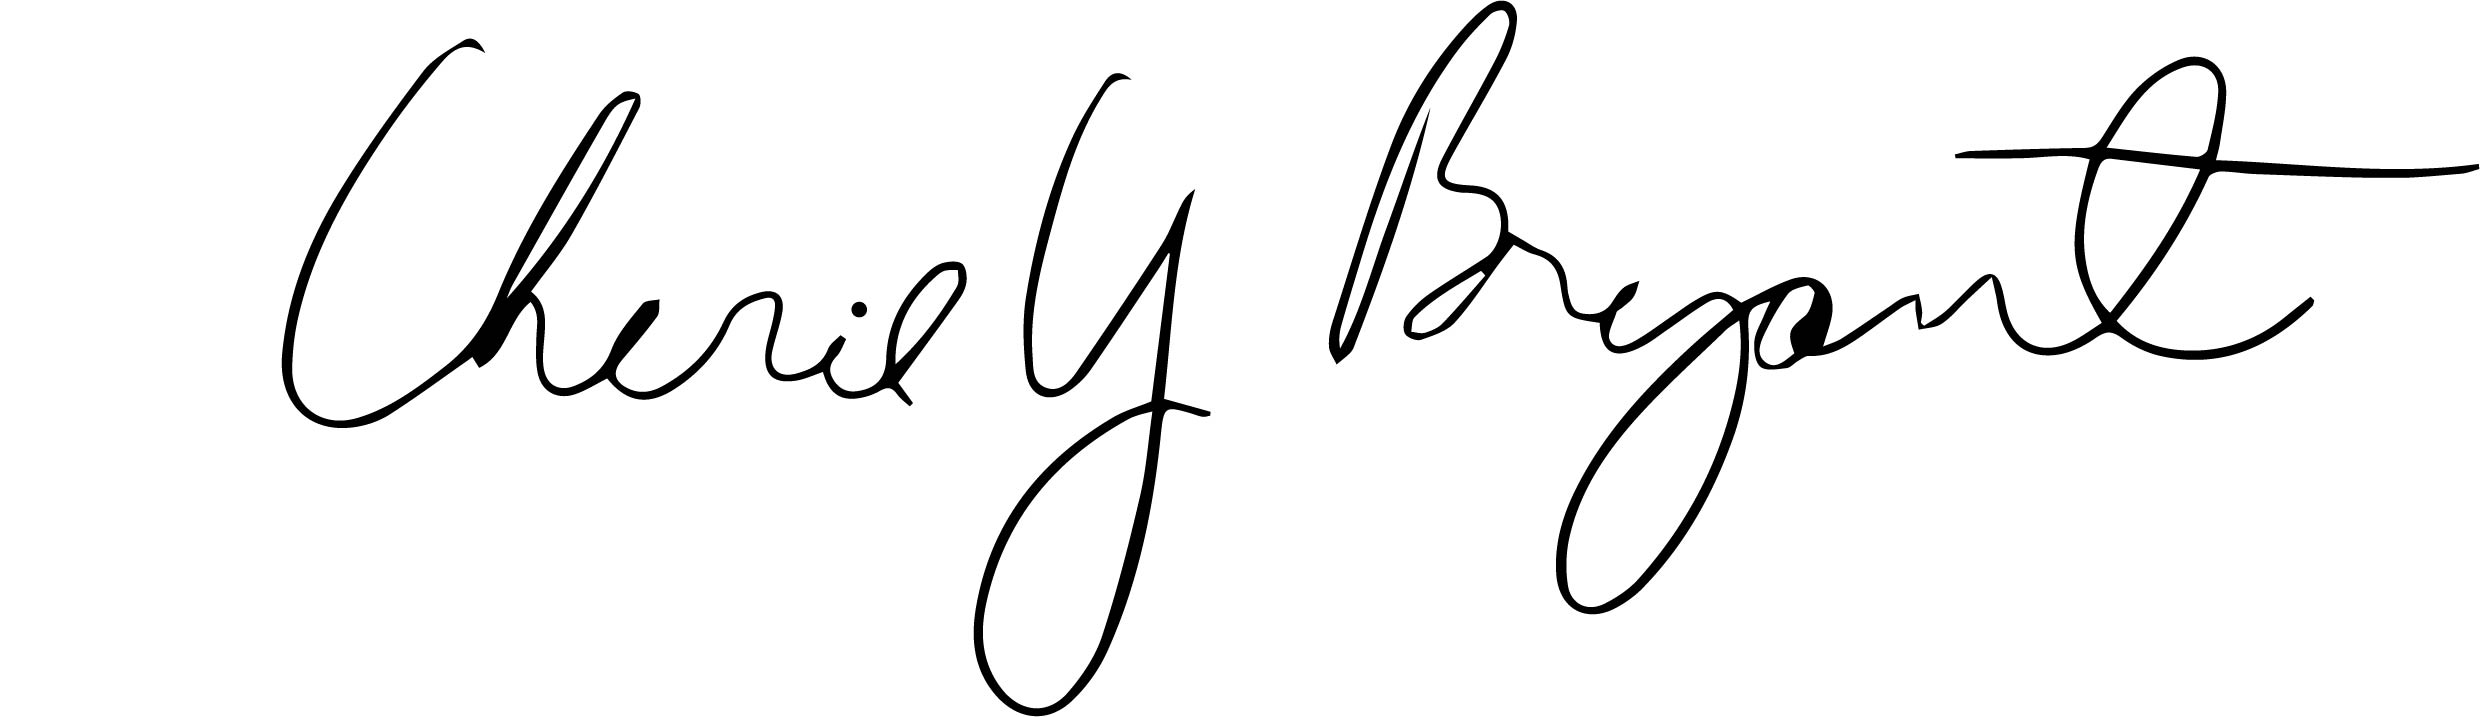 Cherie Y Bryant